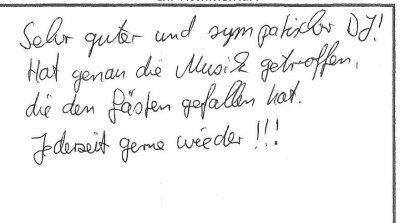 Sehr guter und sympatischer DJ!
Hat genau die Musik getroffen,
die den Gästen gefallen hat.
Jederzeit gerne wieder!!!